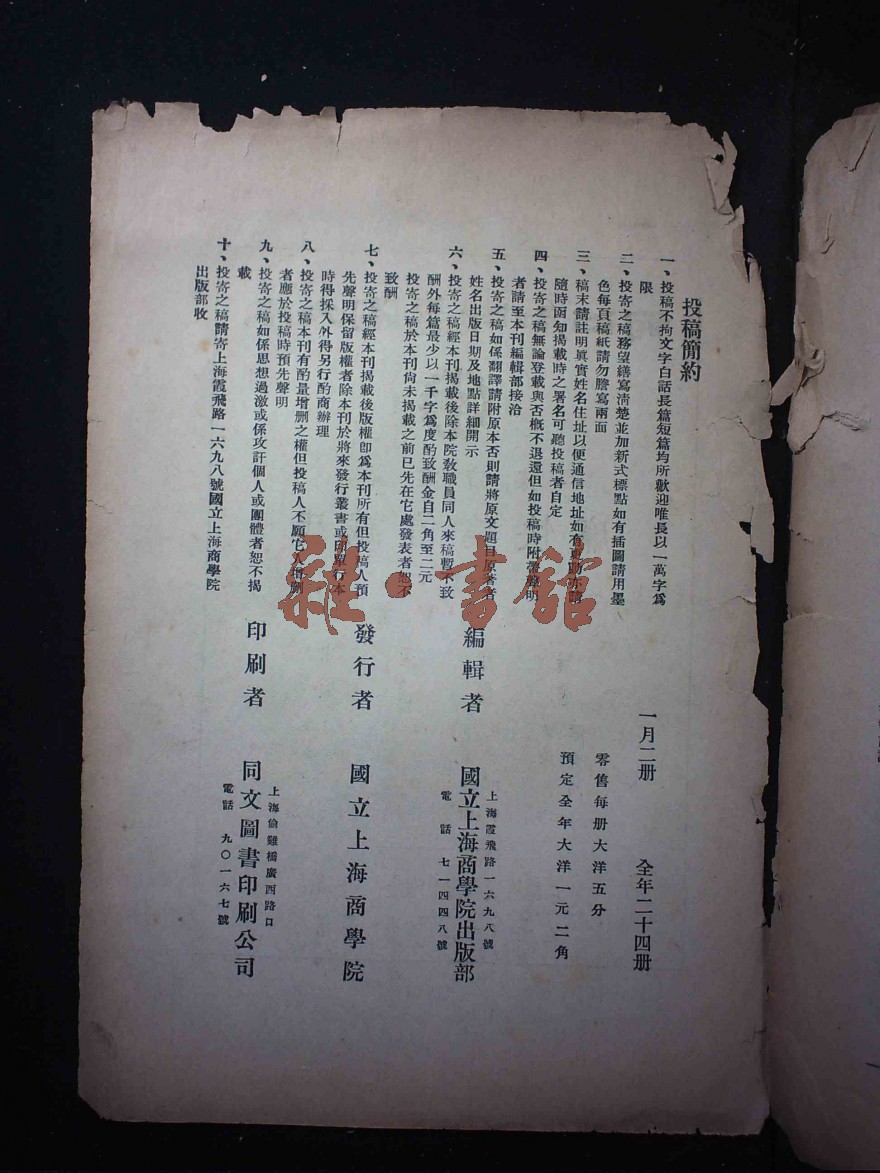 投稿簡約
一、投稿不拘文字白話長篇短篇均所歡迎唯長以一萬字爲
限
二、投寄之稿務望繕寫清楚並加新式標點如有插圖請用墨
色每頁稿紙請勿謄寫兩面
三、稿末請註明眞實姓名住址以便通信地址如有
隨時函知揭載時之署名可聽投稿者自定
四、投寄之稿無論登載與否概不退還但如投稿時附
者請至本刊編輯部接洽
五、投寄之稿如係翻譯請附原本否則請將原文題目原著者
姓名出版日期及地點詳細開示
六、投寄之稿經本刊揭載後除本院敎職員同人來稿暫不致
酬外每篇最少以一千字爲度酌致酬金自二角至二元
投寄之稿於本刊尙未揭載之前已先在它處發表者恕不
致酬
七、投寄之稿經本刊揭載後版權卽爲本刊所有但投稿人預
先聲明保留版權者除本刊於將來發行叢書或印單行本
時得採入外得另行酌商辦理
八、投寄之稿本刊有酌量增刪之權但投稿人不願它人增刪
者應於投稿時預先聲明
九、投寄之稿如係思想過激或係攻訐個人或團體者恕不揭
載
十、投寄之稿請寄上海霞飛路一六九八號國立上海商學院
出版部收
一月二册 全年二十四册
零售每册大洋五分
預定全年大洋一元二角
編輯者 國立上海商學院出版部
上海霞飛路一六九八號
電話 七一四四八號
發行者 國立上海商學院
印刷者 同文圖書印刷公司
上海偷雞橋廣西路口
電話 九〇一六七號
書館